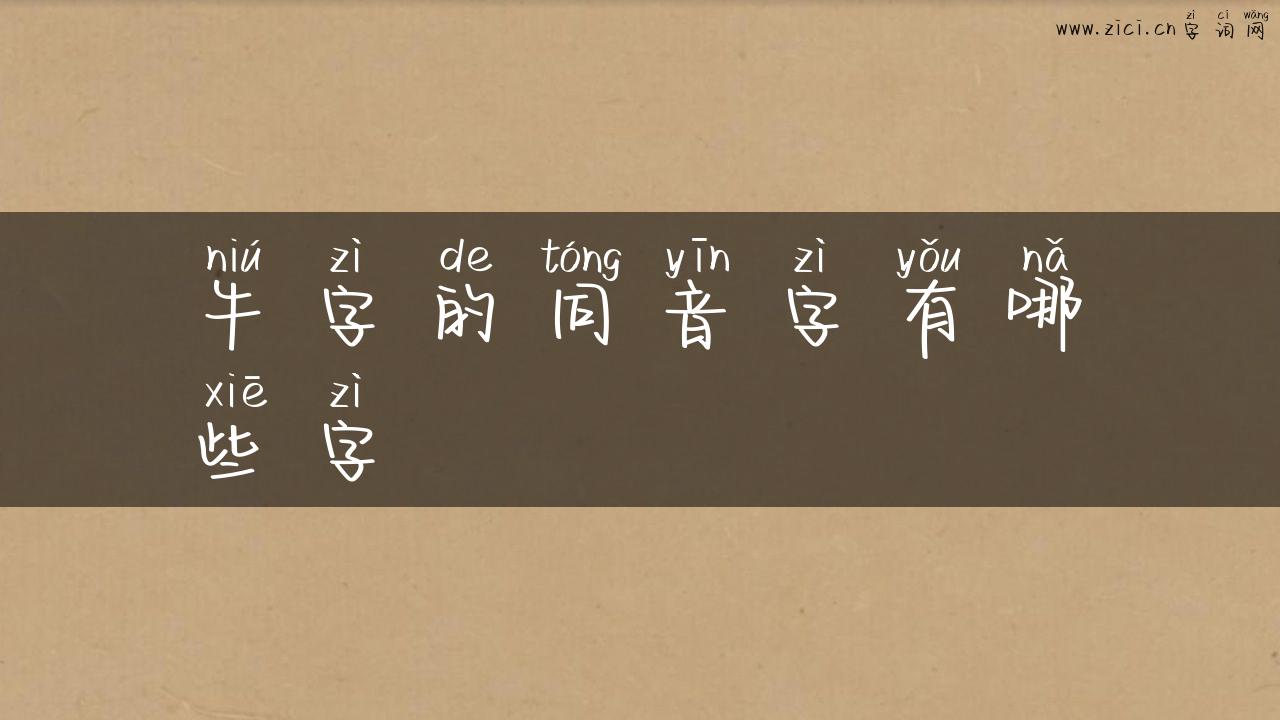 zì cí wǎng
www.zici.cn 字 词 网
niú zì de tóng yīn zì yǒu nǎ
牛 字 的 同 音 字 有 哪
xiē zì
些 字